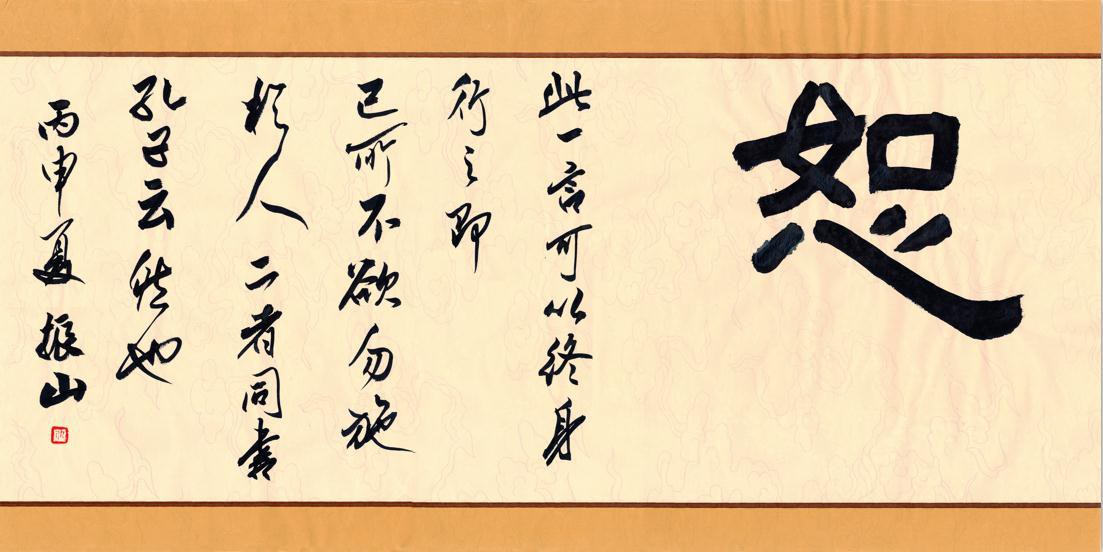 恕
此一言可以终身
行之即
己所不欲勿施
於人二者同书
孔子云然也
丙申夏振山